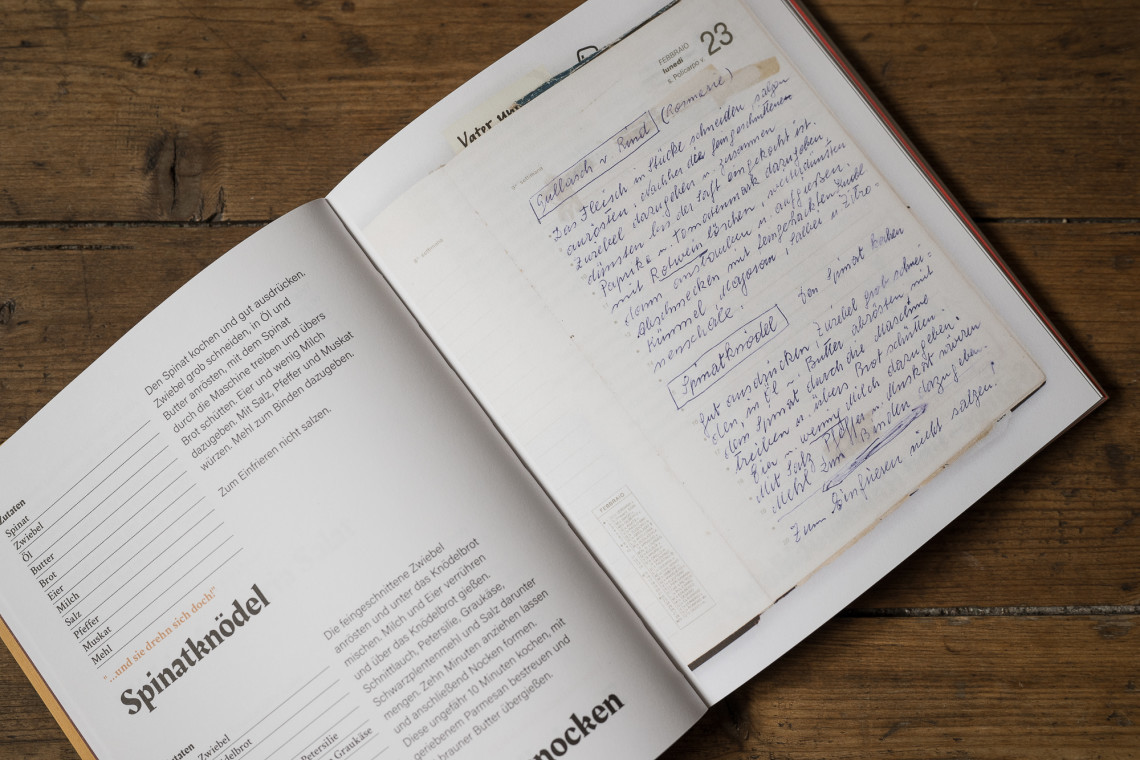 Den Spinat kochen und gut ausdrücken.
Zwiebel grob schneiden, in Öl und
Butter anrösten, mit dem Spinat
durch die Maschine treiben und übers
Brot schütten. Eier und wenig Milch
dazugeben. Mit Salz, Pfeffer und Muskat
würzen. Mehl zum Binden dazugeben.
Zum Einfrieren nicht salzen.
Zutaten
Spinat
Zwiebel
Öl
Butter
Brot
Eier
Milch
Salz
Pfeffer
Muskat
Mehl
"...und sie drehn sich doch!"
Spinatknödel
Die feingeschnittene Zwiebel
anrösten und unter das Knödelbrot
mischen. Milch und Eier verrühren
und über das Knödelbrot gießen.
Schnittlauch, Petersilie, Graukäse,
Schwarzplentenmehl und Salz darunter
mengen. Zehn Minuten anziehen lassen
und anschließend Nocken formen.
Diese ungefähr 10 Minuten kochen, mit
geriebenem Parmesan bestreuen und
brauner Butter übergießen.
taten
Zwiebel
delbrot
Petersilie
Graukäse
nocken
Vater und
FEBBRAIO
lunedì
23
s. Policarpo v.
Gullasch v Rind (Rosmarie)
Das Fleisch in Stücke schneiden salzen
anrösten. Nachher die feingeschnittene
Zwiebel dazugeben u. zusammen
dünsten bis der Saft eingekocht ist.
Paprika u. Tomatenmark dazugeben,
mit Rotwein löschen, weiterdünsten
dann anstauben u. aufgießen.
Abschmecken mit feingehackten
Kümmel Majoran, Salbei u Zitro-
nenschale.
Spinatknödel Den Spinat kochen
gut ausdrücken, Zwiebel grob schnei-
den, in Öl u. Butter anrösten mit
dem Spinat durch die Maschine
treiben u. übers Brot schütten.
Eier u. wenig Milch dazugeben.
Mit Salz Pfeffer u. Muskat würzen
Mehl zum Binden dazugeben.
Zum Einfrieren nicht salzen!
FEBBRAIO